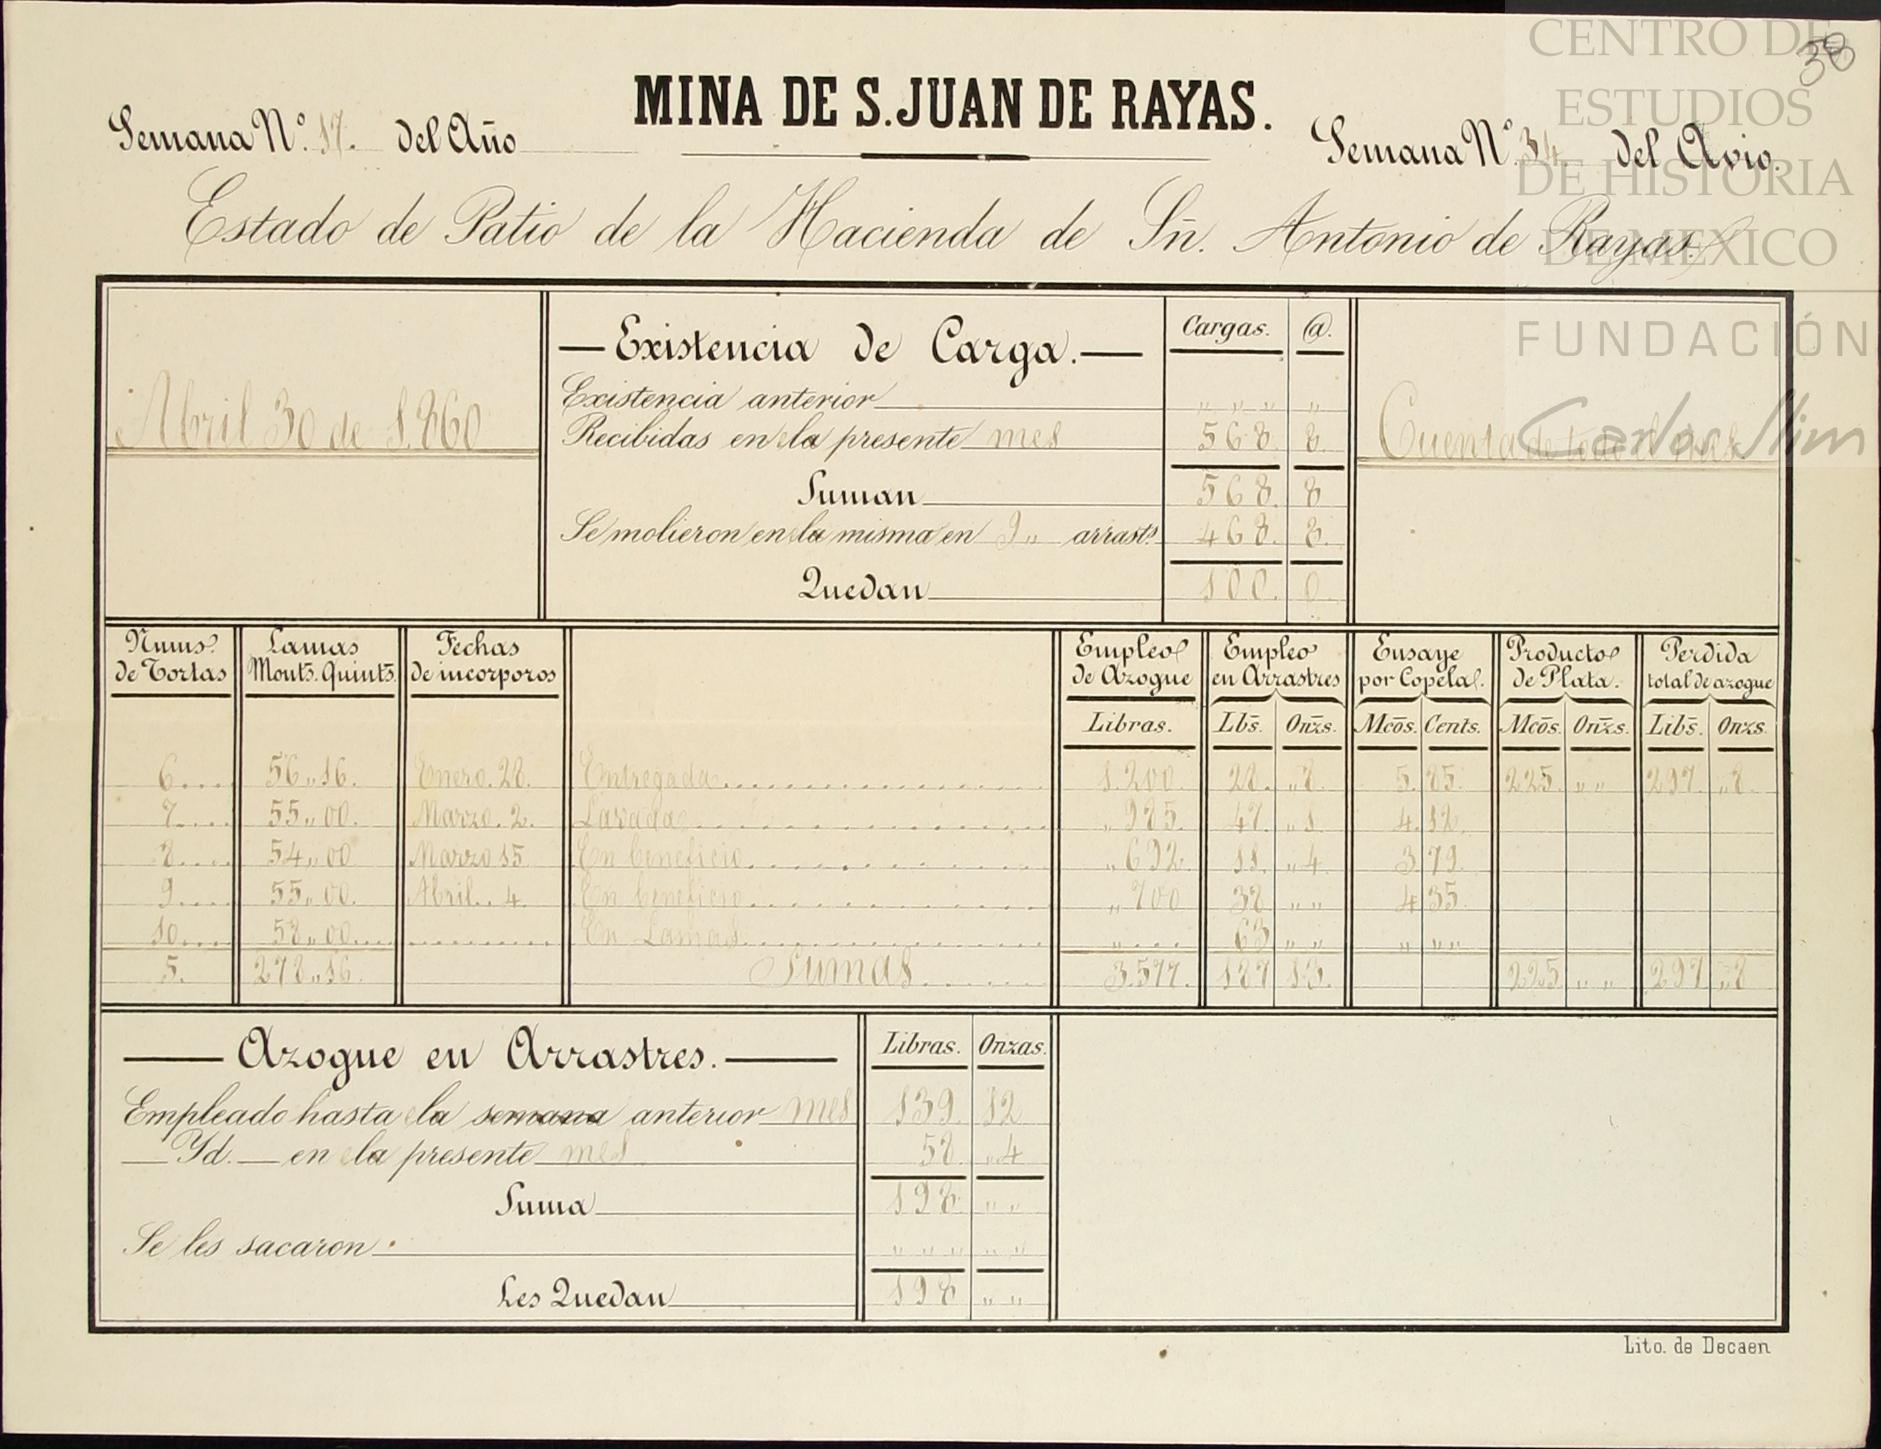 CENTRO DE
ESTUDIOS
DE HISTORIA
DE MEXICO
FUNDACIÓN
Carlos Slim
38
MINA DE S. JUAN DE RAYAS.
Semana N.º 17. del Año
Semana N.º 34. del Avio.
Estado de Patio de la Hacienda de Sñ. Antonio de Rayas.
Abril 30 de 1.860
— Existencia de Carga. — Cargas. @.
Existencia anterior „ „ „ „
Recibidas en el presente mes 568. 8.
Suman 568. 8
Se molieron en el misma en 9„ arrast.s 468. 8.
Quedan 100. 0.
Cuenta de todo el mes.
Nums. de Tortas Lamas Monts. Quints. Fechas de incorporos Empleo de Azogue Empleo en Arrastres Ensaye por Copela. Producto de Plata. Perdida total de azogue
Libras. Lbs. Onzs. Mcos. Cents. Mcos. Onzs. Libs. Onzs.
6.... 56„16. Enero. 28. Entregada 1.200. 28. „8. 5. 85. 225. „ „ 297. „8.
7.... 55„00. Marzo. 2. Lavada „985. 47. „1. 4. 12.
8.... 54„00 Marzo 15 En beneficio „692. 11. „4. 3. 79.
9.... 55„00. Abril.. 4. En beneficio „700 38 „ „ 4 35.
10.... 58„00.... En Lamas „.... 63 „ „ „ „ „
5. 278„16. Sumas 3.577. 187 13. 225 „ „ 297 „8
— Azogue en Arrastres. — Libras. Onzas.
Empleado hasta el semana anterior mes 139. 12
— Yd. — en el presente mes 58. „4
Suma 198 „ „
Se les sacaron „ „ „ „ „
Les Quedan 198 „ „
Lito. de Decaen